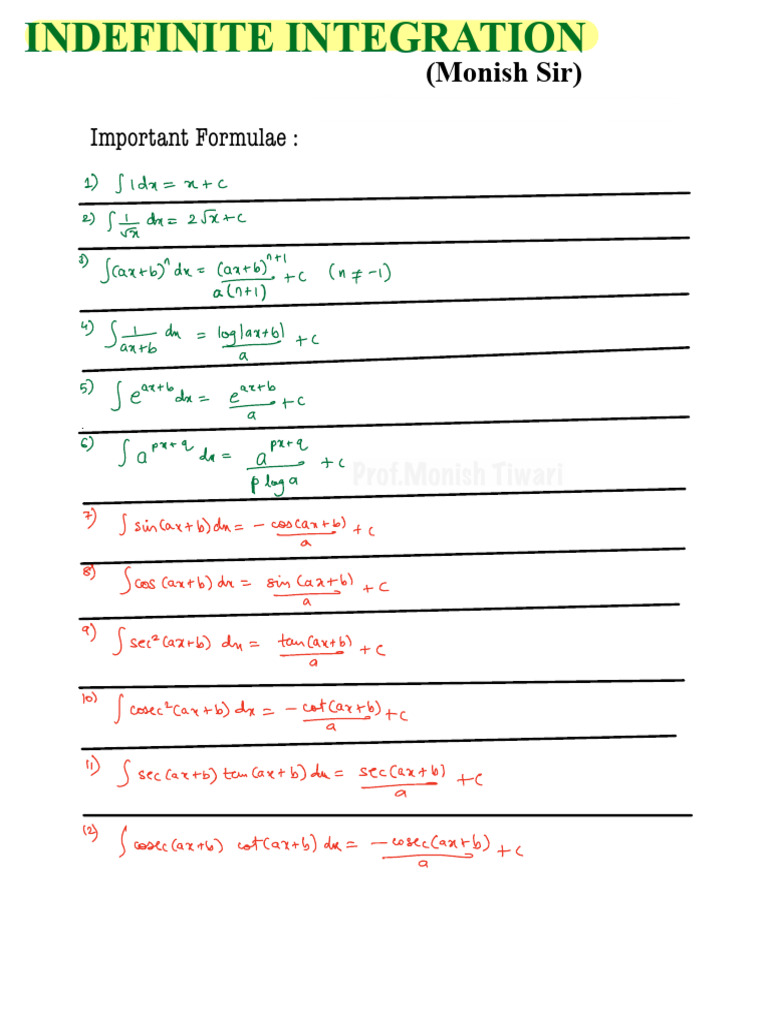 INDEFINITE INTEGRATION
(Monish Sir)
Important Formulae :
1) ∫1dx = x + c
2) ∫ 1/√x dx = 2√x + c
3) ∫(ax+b)^n dx = (ax+b)^(n+1) / a(n+1) + c (n ≠ -1)
4) ∫ 1/(ax+b) dx = log|ax+b| / a + c
5) ∫ e^(ax+b) dx = e^(ax+b) / a + c
6) ∫ a^(px+q) dx = a^(px+q) / p log a + c
Prof.Monish Tiwari
7) ∫ sin(ax+b)dx = - cos(ax+b) / a + c
8) ∫ cos(ax+b) dx = sin(ax+b) / a + c
9) ∫ sec²(ax+b) dx = tan(ax+b) / a + c
10) ∫ cosec²(ax+b) dx = - cot(ax+b) / a + c
11) ∫ sec(ax+b) tan(ax+b) dx = sec(ax+b) / a + c
12) ∫ cosec(ax+b) cot(ax+b) dx = - cosec(ax+b) / a + c